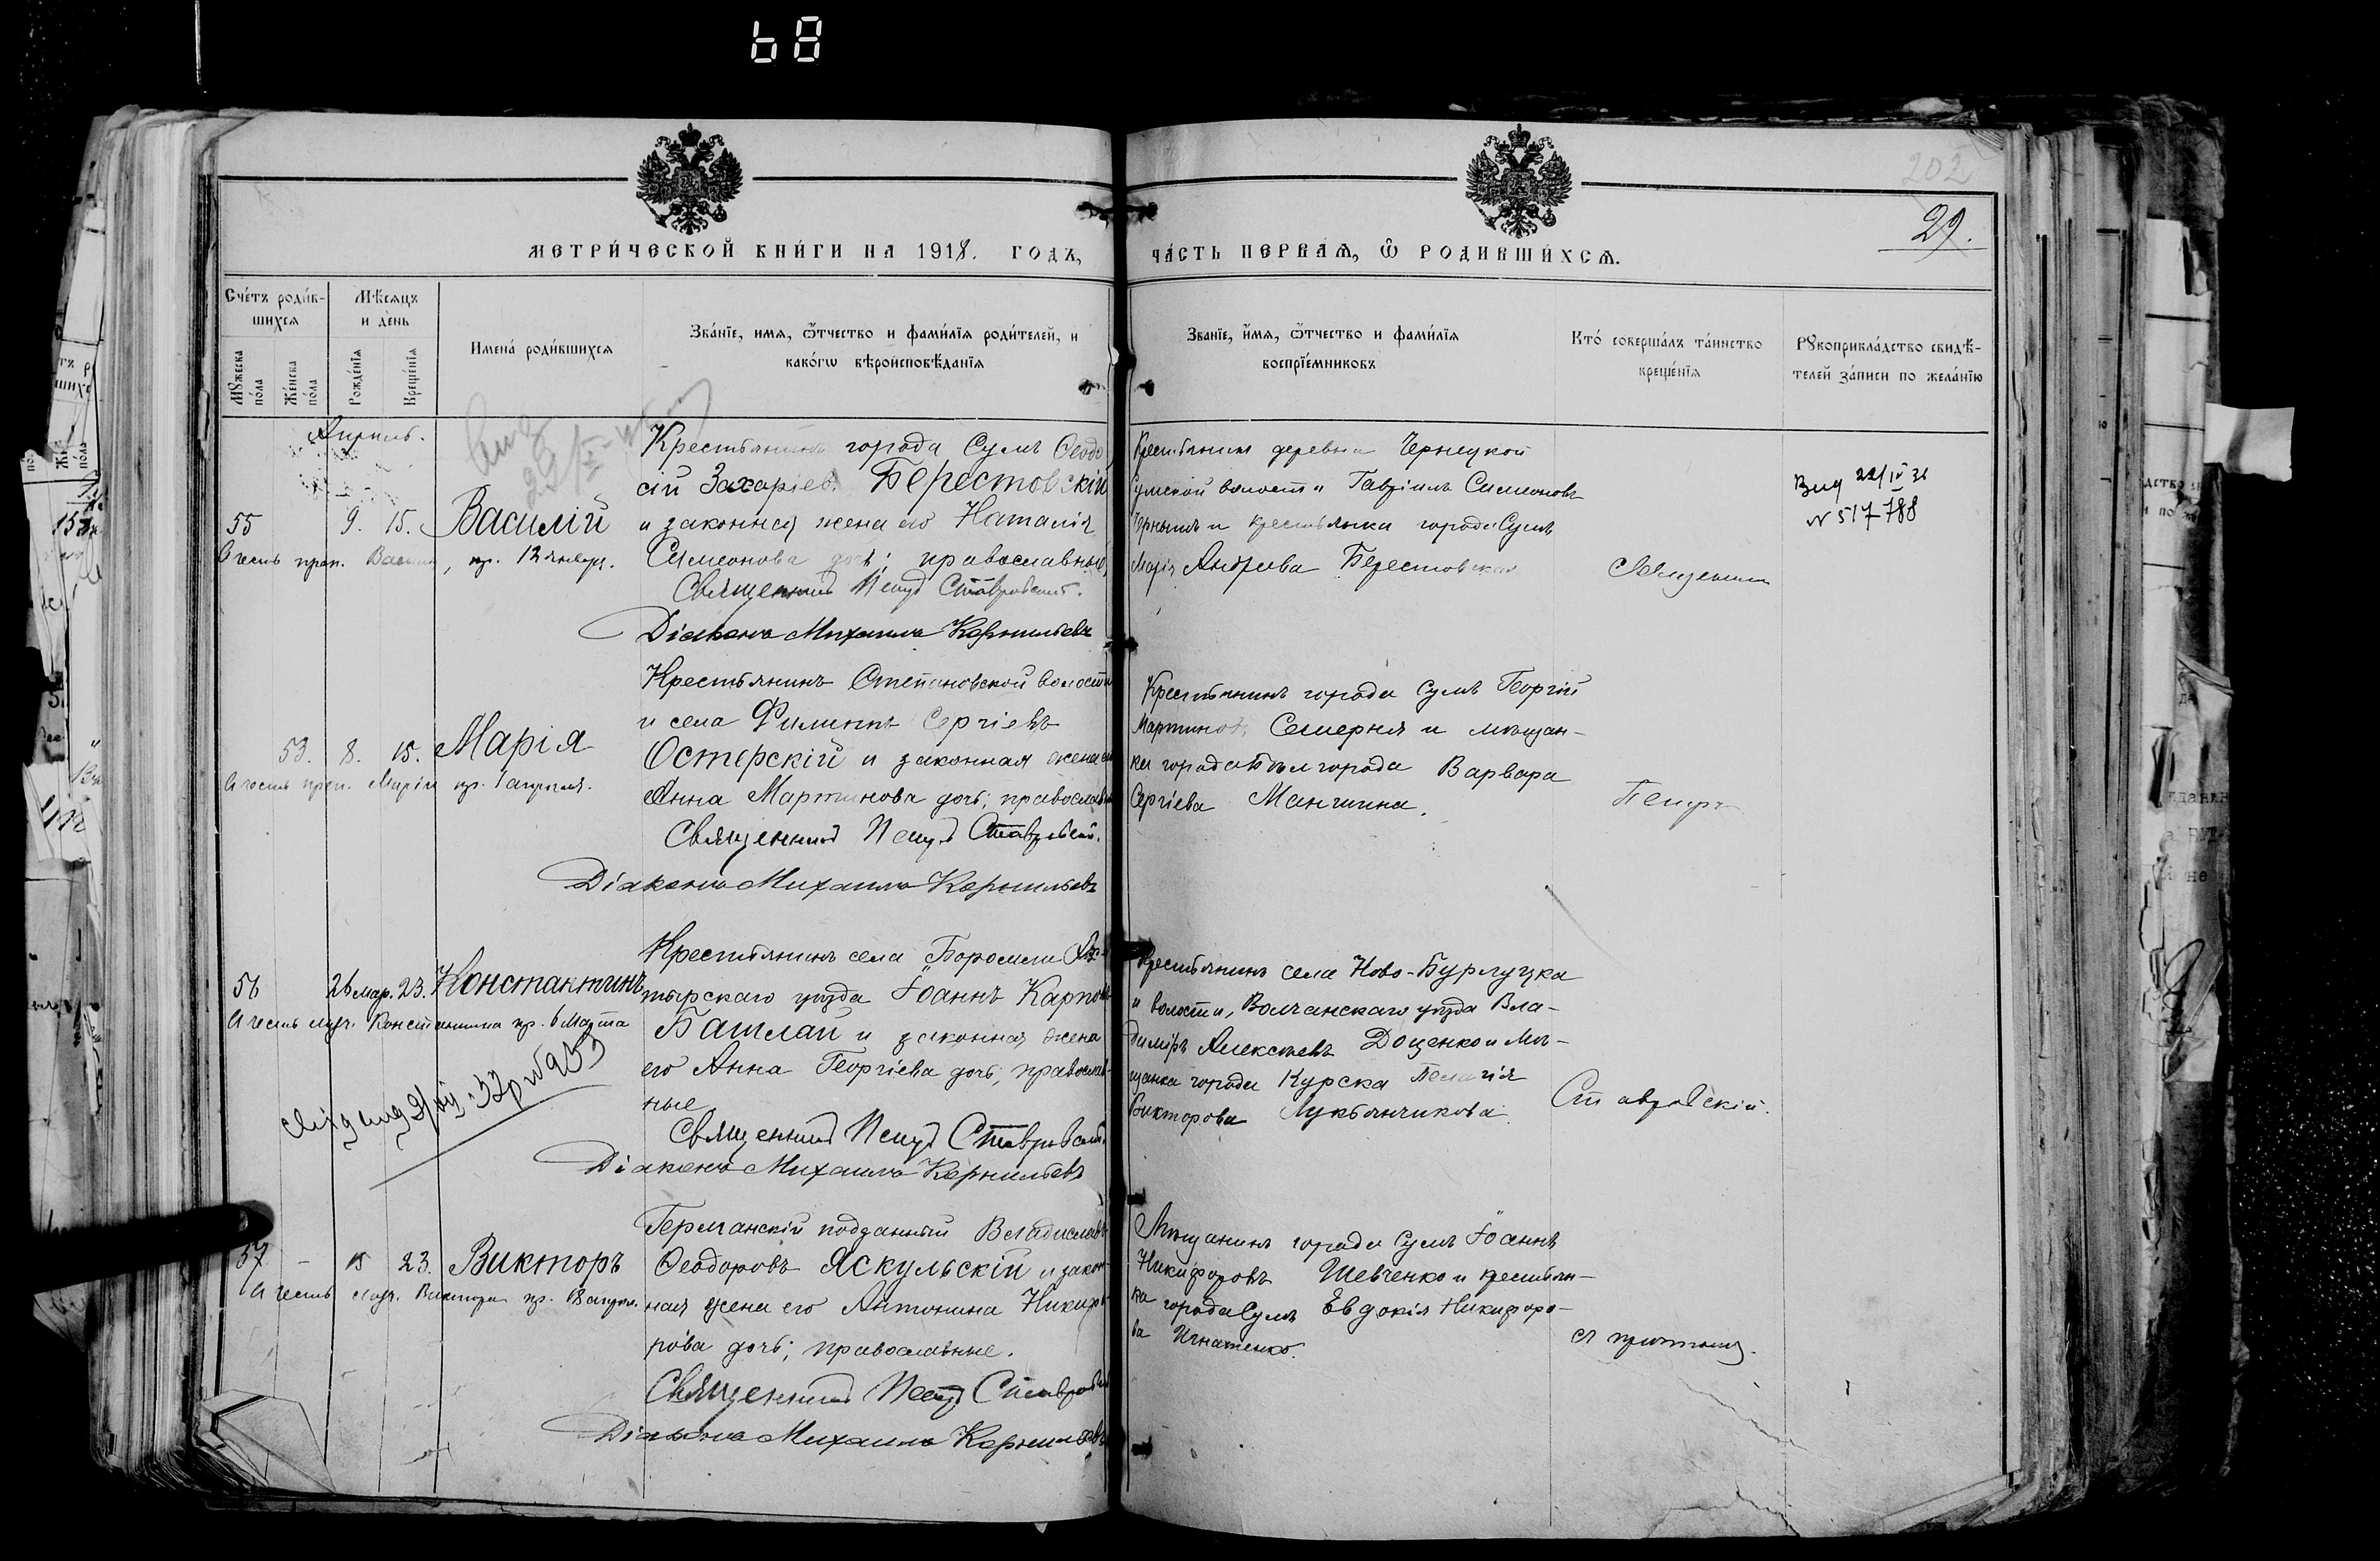 68
202
29.
МЕТРИ́ЧЕСКОЙ КНИ́ГИ НА 1918. ГОДЪ,
ЧА́СТЬ ПЕРВАѦ, Ѽ РОДИВШИ́ХСѦ.
Сче́тъ роди́в-
шихсѧ
Мѣ́сяцъ
и де́нь
Имена́ роди́вшихсѧ
Зва́нїе, имѧ, ѻ҆́тчество и фами́лїѧ роди́телей, и
како́гѡ вѣроисповѣ́данїѧ
Мꙋ́жеска
по́ла
Же́нска
по́ла
Рожде́нїѧ
Креще́нїѧ
Зва́нїе, и́мѧ, ѻ҆́тчество и фами́лїѧ
воспрїе́мниковъ
Кто́ соверша́лъ та́инство
креще́нїѧ
Рꙋкоприкла́дство свидѣ́-
телей за́писи по жела́нїю
Апрѣль.
55 9. 15. Василій
В честь преп. , пр. 12 января.
Крестьянинъ города Сумъ Ѳеодо
сій Захаріевъ Берестовскій
и законная жена его Наталія
Симеонова дочь; православные
Священникъ Петръ Ставровскій.
Діаконъ Михаилъ Корнильевъ
Крестьянинъ деревни Чернецкой
Сумской волости Гавріилъ Симеоновъ
и крестьянка города Сумъ
Марія Андреева Берестовская
Священникъ
Вид 22/IV 36
№ 517788
53. 8. 15. Марія
В честь преп. Маріи пр. 1 апрѣля.
Крестьянинъ Степановской волости
и села Филиппъ Сергіевъ
Остерскій и законная жена его
Анна Мартинова дочь; православн
Священникъ Петръ Ставровскій.
Діаконъ Михаилъ Корнильевъ
Крестьянинъ города Сумъ Георгій
Мартиновъ Семерня и мѣщан-
ка города Бѣлгорода Варвара
Сергіева
Петръ
56 26 мар. 23. Константинъ
В честь муч. Константина пр. 6 Марта
Крестьянинъ села Боромли Ах-
тырскаго уѣзда Іоаннъ Карповъ
Башлай и законная жена
его Анна Георгіева дочь, православ-
ные
Священникъ Петръ Ставровскій.
Діаконъ Михаилъ Корнильевъ
Крестьянинъ села Ново-Бурлуцка
и волости, Волчанскаго уѣзда Вла-
диміръ Алексѣевъ Доценко и мѣ-
щанка города Курска Пелагія
Викторова Лукьянчикова
Ставровскій.
57 - 15 23. Викторъ
В честь муч. Виктора пр. апрѣл.
Германскій подданный Владиславъ
Ѳеодоровъ Яскульскій и закон-
ная жена его Антонина Никифо-
рова дочь; православные.
Священникъ Петръ Ставровскій
Діаконъ Михаилъ Корнильевъ
Мѣщанинъ города Сумъ Іоаннъ
Никифоровъ Шевченко и крестьян-
ка города Сумъ Евдокія Никифоро-
ва Игнатенко.
съ причтомъ.